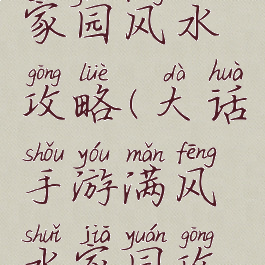 家园风水
gōng lüè dà huà
攻略(大话
shǒu yóu mǎn fēng
手游满风
shuǐ jiā yuán gōng
水家园攻